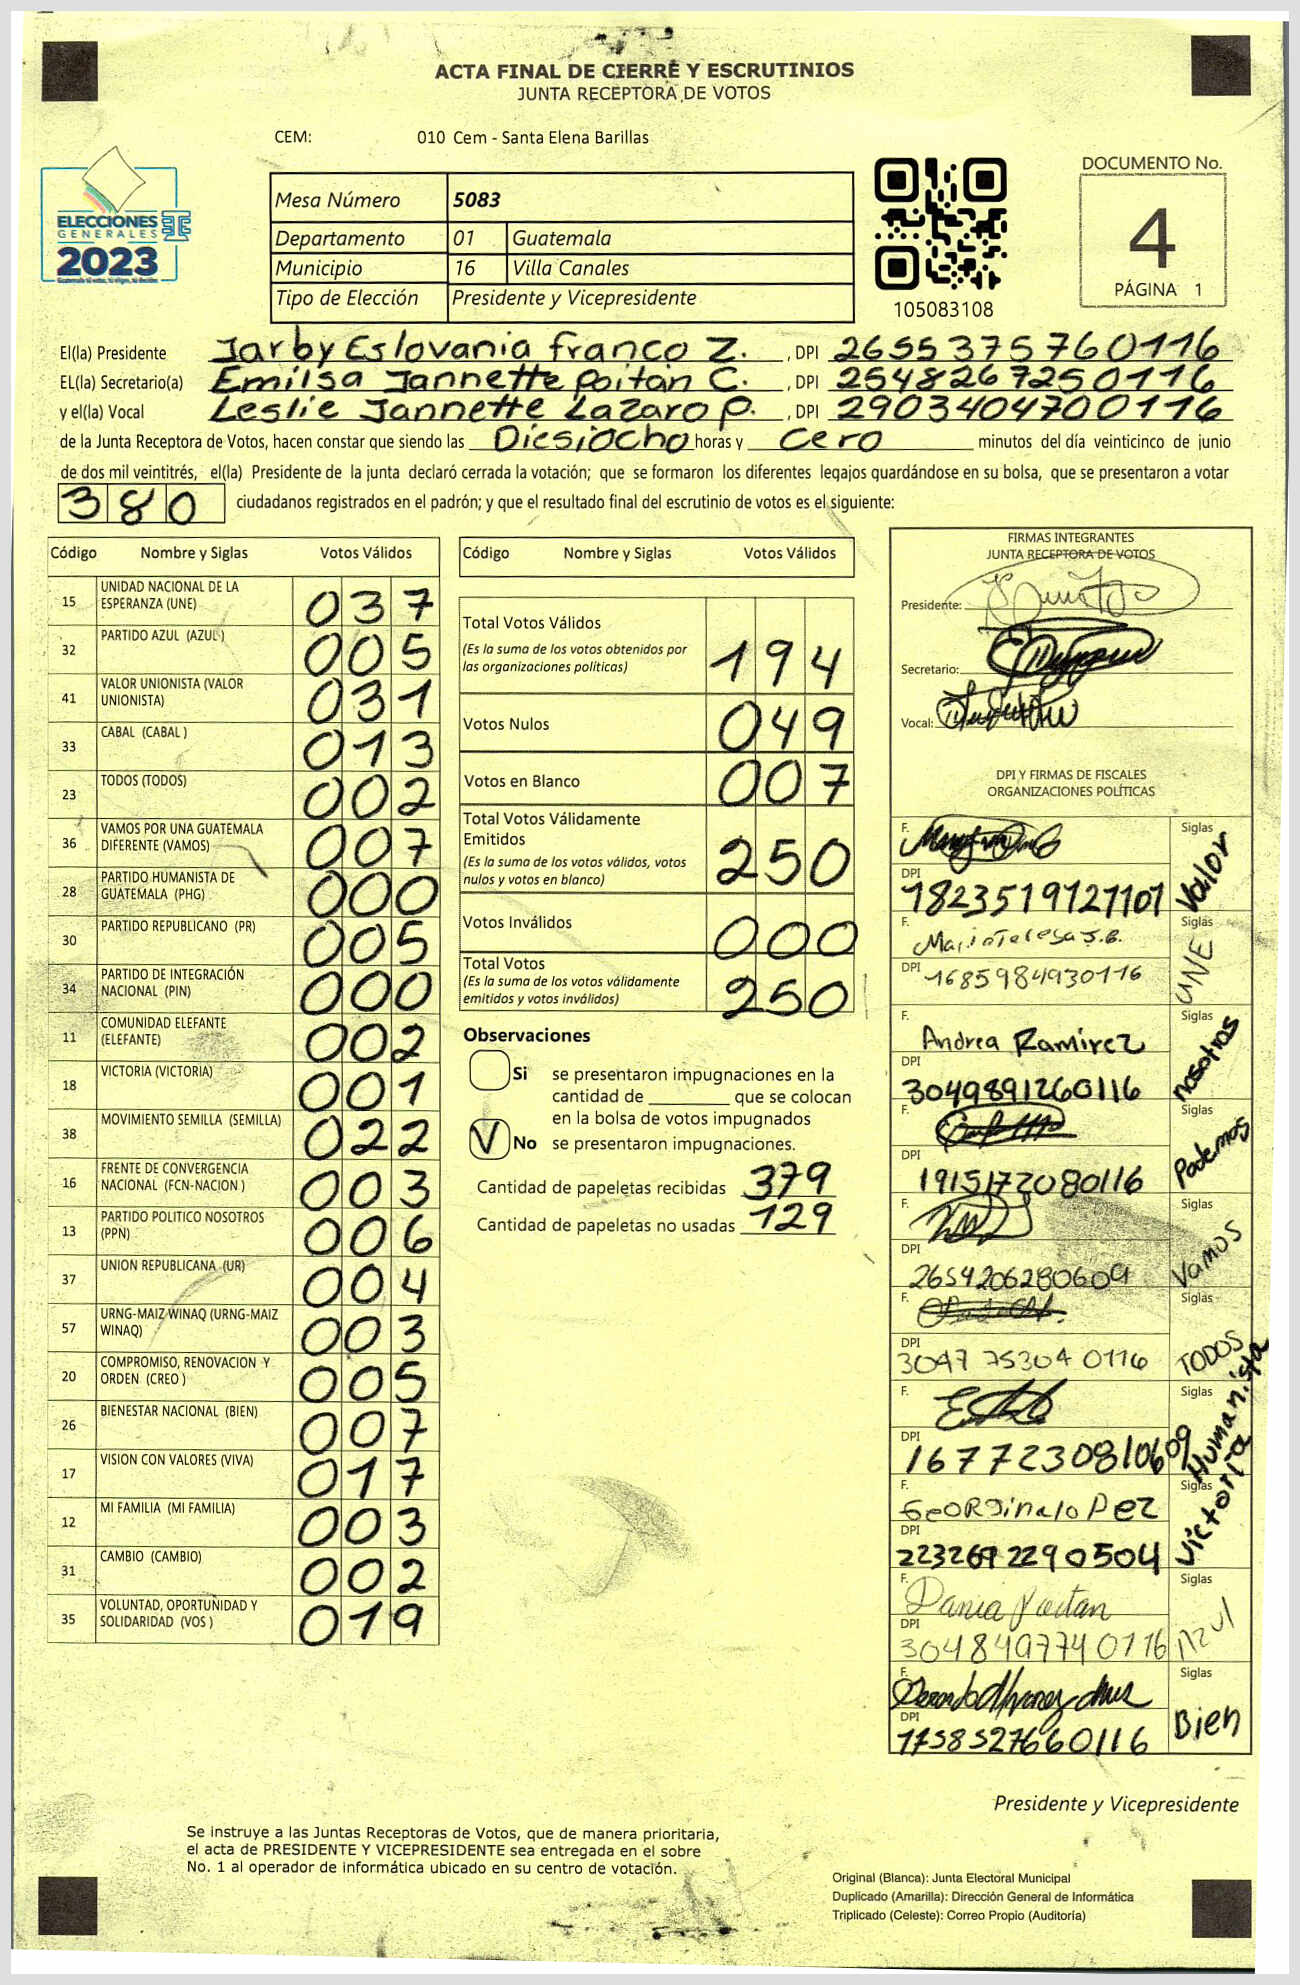 ACTA FINAL DE CIERRE Y ESCRUTINIOS
JUNTA RECEPTORA DE VOTOS
CEM: 010 Cem - Santa Elena Barillas
ELECCIONES
GENERALES
2023
Mesa Número 5083
Departamento 01 Guatemala
Municipio 16 Villa Canales
Tipo de Elección Presidente y Vicepresidente
105083108
DOCUMENTO No.
4
PÁGINA 1
El(la) Presidente Jarby Eslovania franco Z. , DPI 2655375760116
EL(la) Secretario(a) Emilsa Jannette Poitan C. , DPI 2548267250116
y el(la) Vocal Leslie Jannette Lazaro P. , DPI 2903404700116
de la Junta Receptora de Votos, hacen constar que siendo las Diesiocho horas y cero minutos del día veinticinco de junio
de dos mil veintitrés, el(la) Presidente de la junta declaró cerrada la votación; que se formaron los diferentes legajos quardándose en su bolsa, que se presentaron a votar
380 ciudadanos registrados en el padrón; y que el resultado final del escrutinio de votos es el siguiente:
Código Nombre y Siglas Votos Válidos
15 UNIDAD NACIONAL DE LA ESPERANZA (UNE) 037
32 PARTIDO AZUL (AZUL ) 005
41 VALOR UNIONISTA (VALOR UNIONISTA) 031
33 CABAL (CABAL ) 013
23 TODOS (TODOS) 002
36 VAMOS POR UNA GUATEMALA DIFERENTE (VAMOS) 007
28 PARTIDO HUMANISTA DE GUATEMALA (PHG) 000
30 PARTIDO REPUBLICANO (PR) 005
34 PARTIDO DE INTEGRACIÓN NACIONAL (PIN) 000
11 COMUNIDAD ELEFANTE (ELEFANTE) 002
18 VICTORIA (VICTORIA) 001
38 MOVIMIENTO SEMILLA (SEMILLA) 022
16 FRENTE DE CONVERGENCIA NACIONAL (FCN-NACION ) 003
13 PARTIDO POLITICO NOSOTROS (PPN) 006
37 UNION REPUBLICANA (UR) 004
57 URNG-MAIZ WINAQ (URNG-MAIZ WINAQ) 003
20 COMPROMISO, RENOVACION Y ORDEN (CREO ) 005
26 BIENESTAR NACIONAL (BIEN) 007
17 VISION CON VALORES (VIVA) 017
12 MI FAMILIA (MI FAMILIA) 003
31 CAMBIO (CAMBIO) 002
35 VOLUNTAD, OPORTUNIDAD Y SOLIDARIDAD (VOS ) 019
Código Nombre y Siglas Votos Válidos
Total Votos Válidos
(Es la suma de los votos obtenidos por
las organizaciones politicas) 194
Votos Nulos 049
Votos en Blanco 007
Total Votos Válidamente
Emitidos
(Es la suma de los votos válidos, votos
nulos y votos en blanco) 250
Votos Inválidos 000
Total Votos
(Es la suma de los votos válidamente
emitidos y votos inválidos) 250
Observaciones
Si se presentaron impugnaciones en la
cantidad de ________ que se colocan
en la bolsa de votos impugnados
V No se presentaron impugnaciones.
Cantidad de papeletas recibidas 379
Cantidad de papeletas no usadas 129
FIRMAS INTEGRANTES
JUNTA RECEPTORA DE VOTOS
Presidente:
Secretario:
Vocal:
DPI Y FIRMAS DE FISCALES
ORGANIZACIONES POLÍTICAS
F. Siglas Valor
DPI 1823519121101
F. Siglas UNE
DPI 1685984930116
F. Andrea Ramirez Siglas nosotros
DPI 3049891260116
F. Siglas Podemos
DPI 1915172080116
F. Siglas Vamos
DPI 2654206280609
F. Siglas TODOS
DPI 3047 75304 0116
F. Siglas Humanista
DPI 1677230810609
F. Georgina lopez Siglas Victoria
DPI 2232692290504
F. Dania Poitan Siglas Azul
DPI 3048497740116
F. Siglas Bien
DPI 1758527660116
Presidente y Vicepresidente
Se instruye a las Juntas Receptoras de Votos, que de manera prioritaria,
el acta de PRESIDENTE Y VICEPRESIDENTE sea entregada en el sobre
No. 1 al operador de informática ubicado en su centro de votación.
Original (Blanca): Junta Electoral Municipal
Duplicado (Amarilla): Dirección General de Informática
Triplicado (Celeste): Correo Propio (Auditoría)